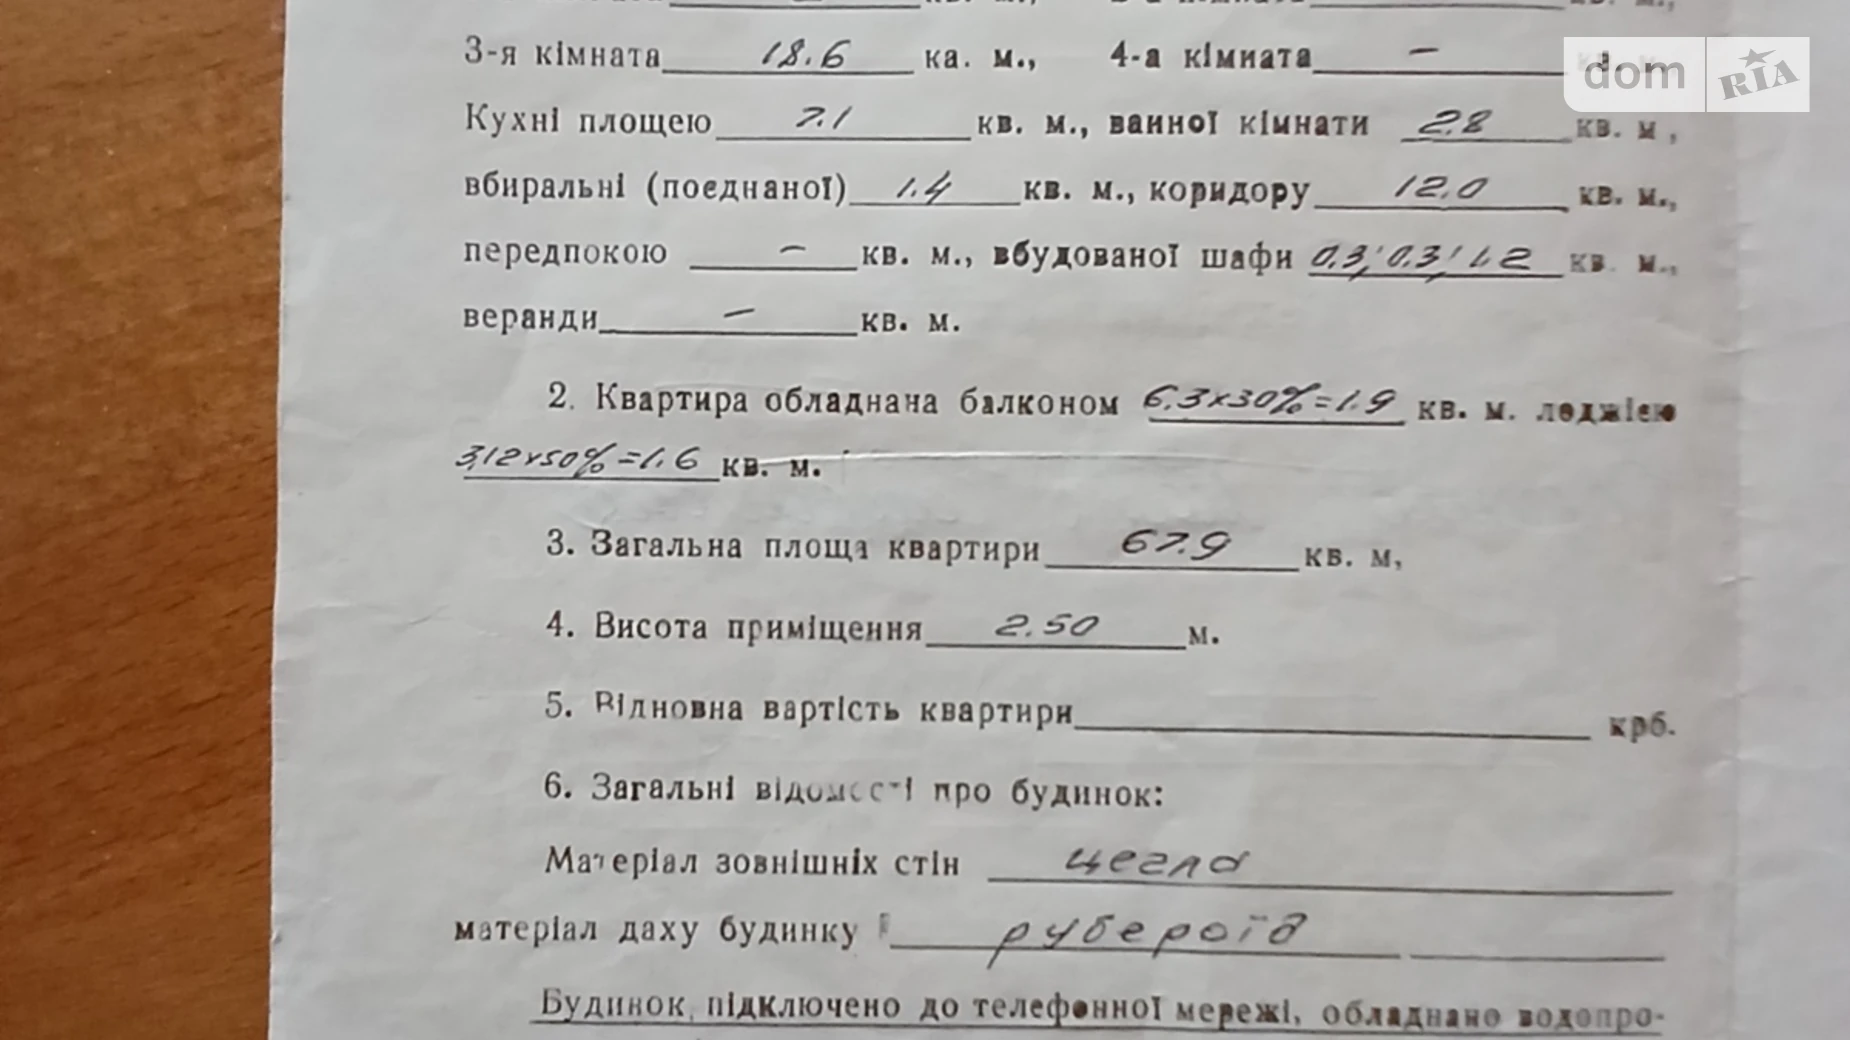 3-я кімната 18.6 ка. м., 4-а кімната –
Кухні площею 7.1 кв. м., ванної кімнати 2.8 кв. м,
вбиральні (поєднаної) 1.4 кв. м., коридору 12.0 кв. м.,
передпокою – кв. м., вбудованої шафи 0.3; 0.3; 1.2 кв. м.,
веранди – кв. м.
2. Квартира обладнана балконом 6.3х30%=1.9 кв. м. лоджією
3,12х50%=1.6 кв. м.
3. Загальна площа квартири 67.9 кв. м,
4. Висота приміщення 2.50 м.
5. Відновна вартість квартири крб.
6. Загальні відомості про будинок:
Матеріал зовнішніх стін цегла
матеріал даху будинку рубероїд
Будинок підключено до телефонної мережі, обладнано водопро-
dom RIA